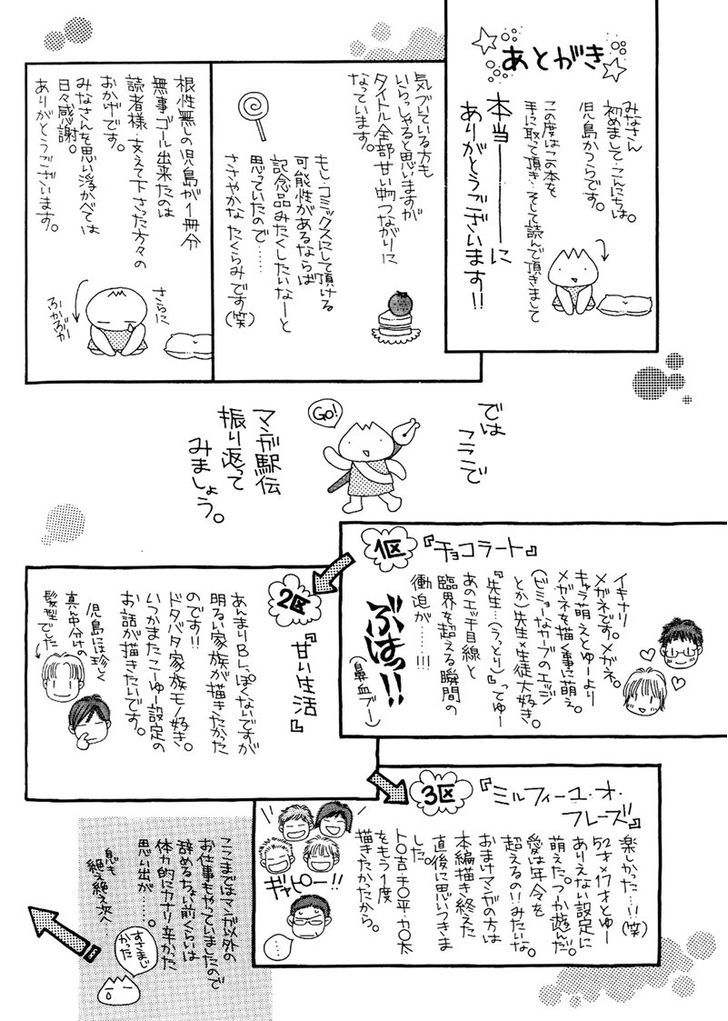 あとがき
みなさん
初めまして・こんにちは。
児島かつらです。
この度はこの本を
手に取って頂き・そして読んで頂きまして
本当――――に
ありがとうございます!!
気づいている方も
いらっしゃると思いますが
タイトル全部甘い物つながりに
なっています。
もし・コミックスにして頂ける
可能性があるならば
記念品みたくしたいなーと
思っていたので……
ささやかなたくらみです(笑)
根性無しの児島が1冊分
無事ゴール出来たのは
おかげです。
読者様・支えて下さった方々の
みなさんを思い浮かべては
日々感謝。
ありがとうございます。
さらに
ふかぶか
では
ここで
Go!
マンガ駅伝
振り返って
みましょう。
1区
『チョコラート』
イキナリ
メガネです。メガネ。
キャラ萌えとゆーより
メガネを描く事に萌え。
(ビミョーなカーブのエッジ
とか)先生×生徒大好き。
『先生…うっとり』ってゆー
あのエッチ目線と
臨界を超える瞬間の
衝迫が……!!!
ぶはっ!!
(鼻血ブー)
2区
『甘い生活』
あんまりBLぽくないですが
明るい家族が描きたかった
のです!!
ドタバタ家族モノ好き。
いつかまたこーゆー設定の
お話が描きたいです。
児島には珍しく
真ん中分けの
髪型でした
3区
『ミルフィーユ・オ・
フレーズ』
楽しかった…!!
(笑)
52才×17才とゆー
ありえない設定に
萌えた。つか遊んだ。
愛は年令を
超えるの!!みたいな。
おまけマンガの方は
本編描き終えた
直後に思いつきま
した。
ト○吉チ○平カ○太
をもう1度
描きたかったから。
ギャピー!!
…
ここまではマンガ以外の
お仕事もやっていましたので
辞めるちょい前くらいは
体力的にカナリ辛かった
思い出が……。
息も
絶え絶え次へ…
すさまじ
かった